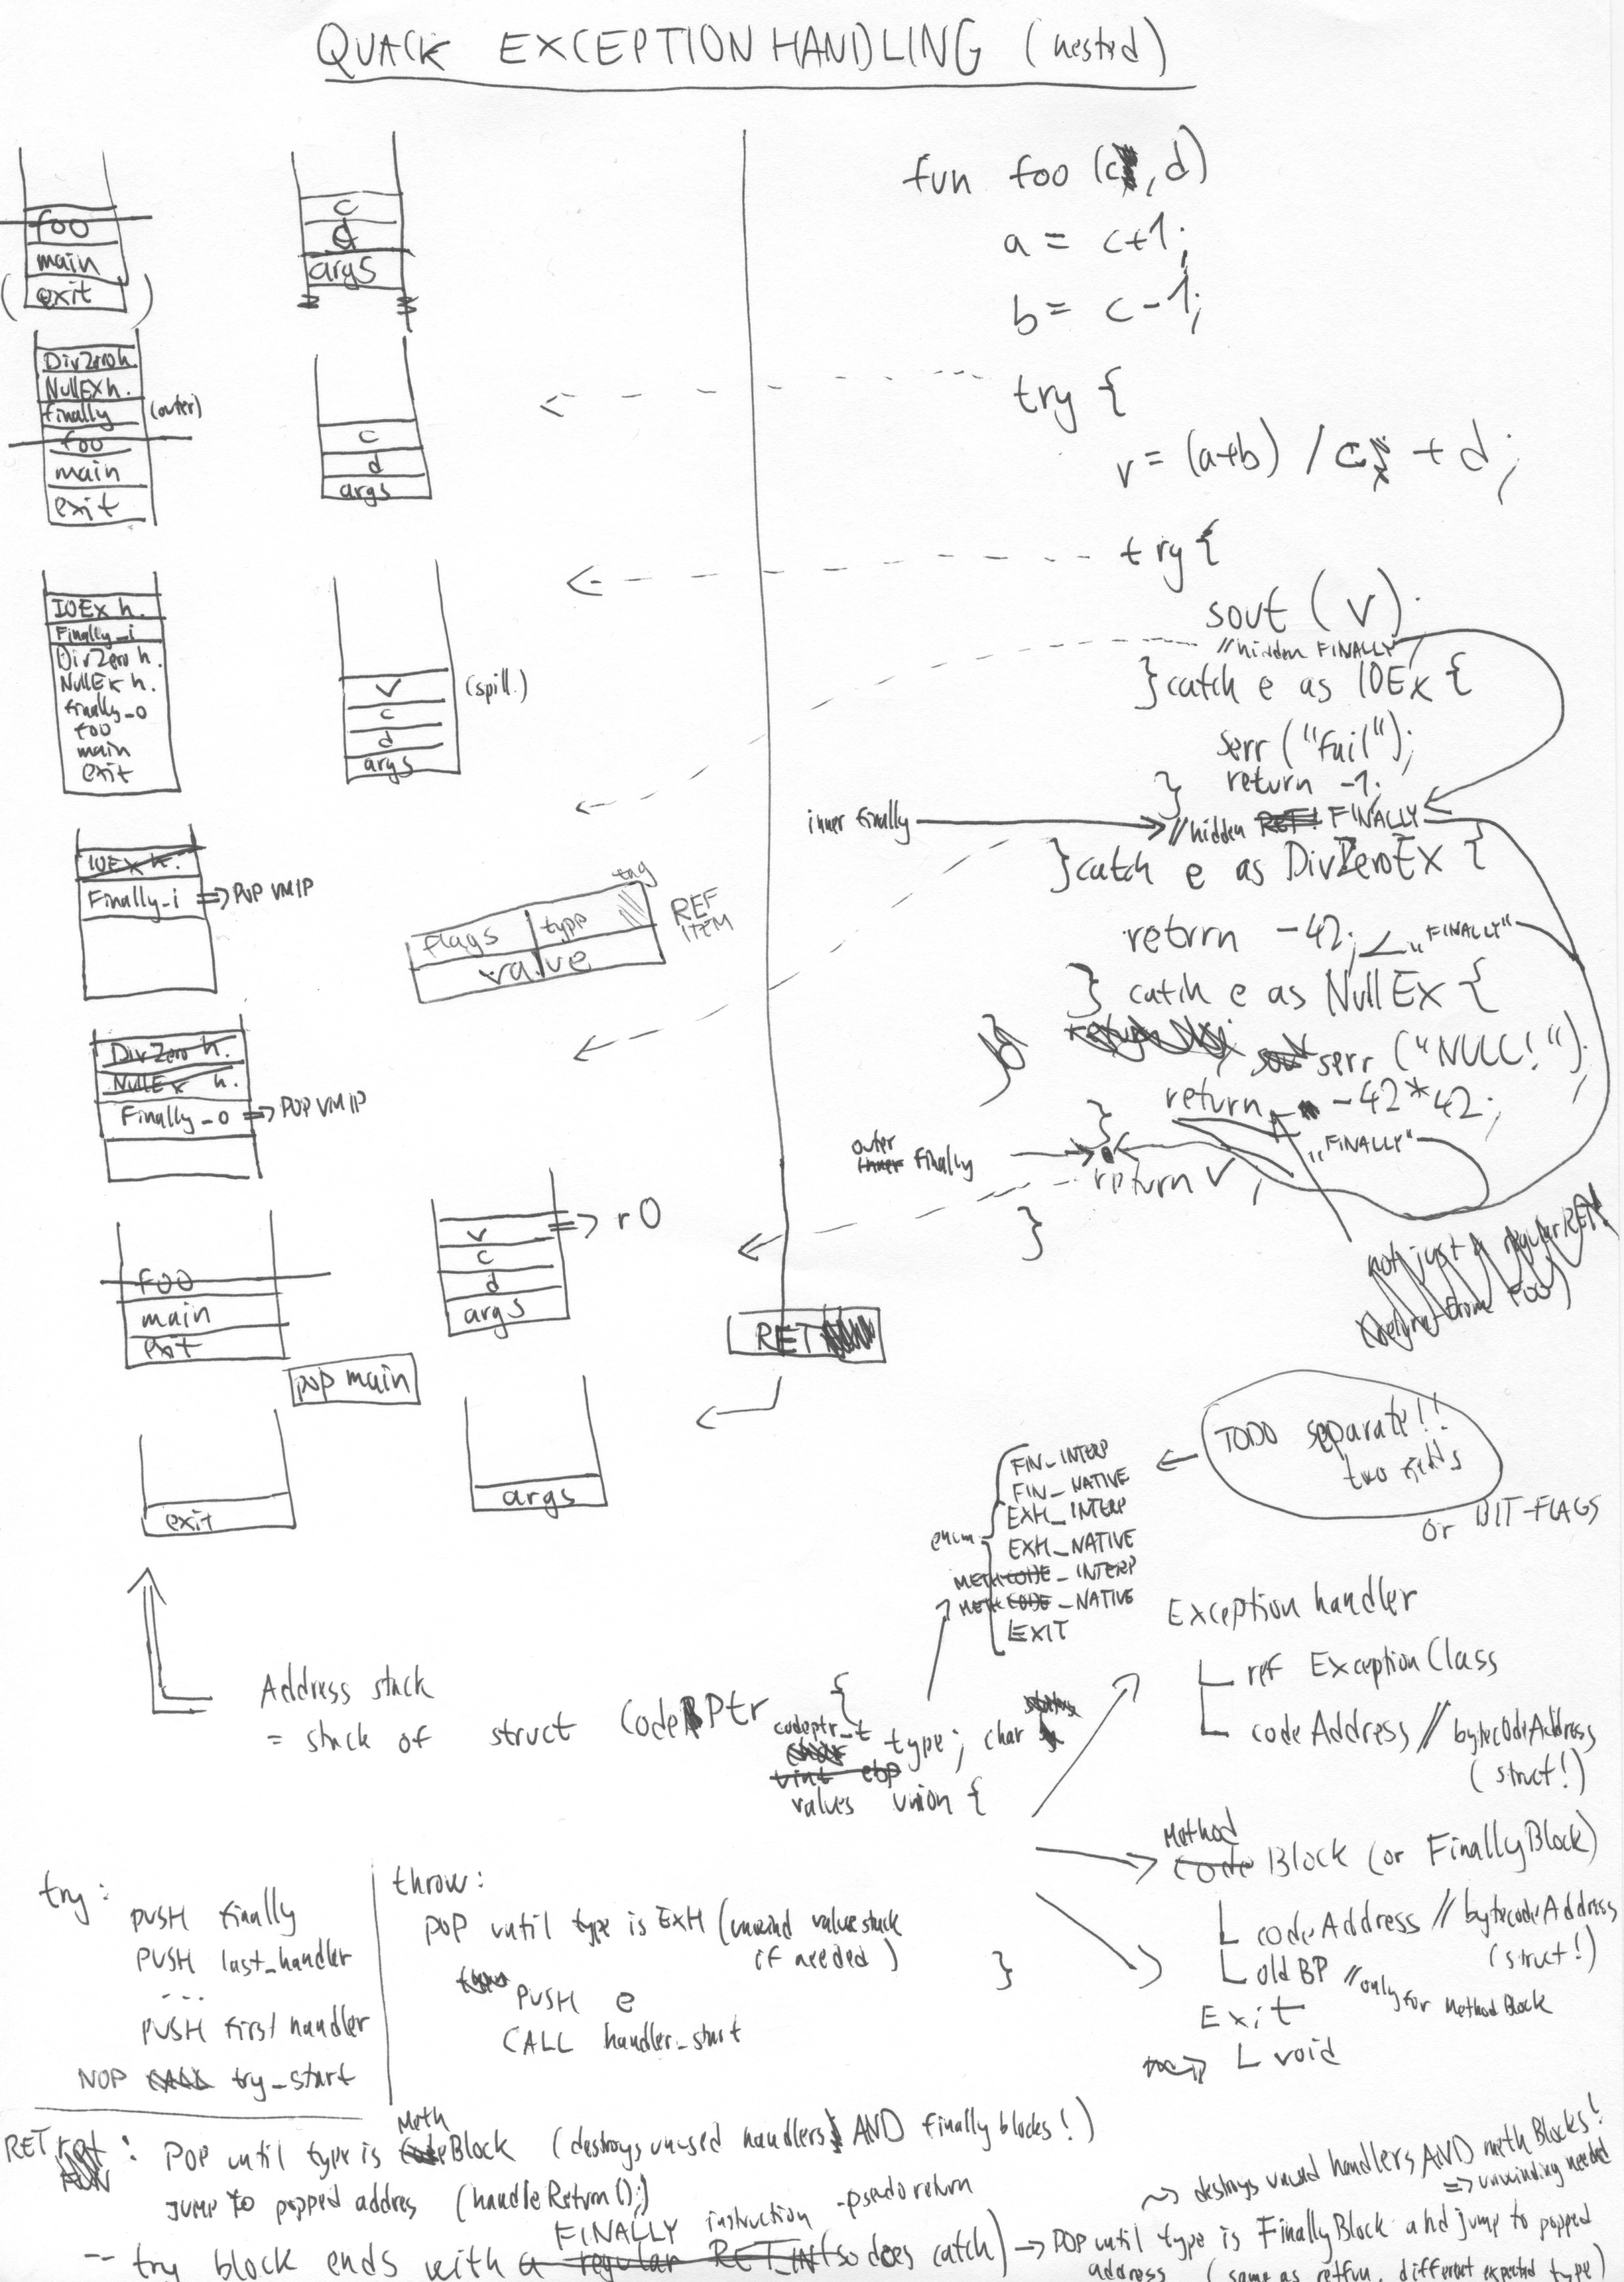 QUACK EXCEPTION HANDLING (nested)
foo
main
(exit)
c
d
args
DivZero h.
NullEX h.
finally (outer)
foo
main
exit
c
d
args
IOEx h.
Finally_i
DivZero h.
NullEx h.
finally_o
foo
main
exit
v (spill.)
c
d
args
IOEx h.
Finally_i => POP VMIP
flags type tag
value
REF
ITEM
DivZero h.
NullEx h.
Finally_o => POP VMIP
foo
main
exit
v => r0
c
d
args
pop main
RET
exit
args
fun foo (c, d)
a = c+1;
b = c-1;
try {
v = (a+b) / c + d;
try {
sout (v);
//hidden FINALLY
} catch e as IOEx {
serr ("Fail");
return -1;
}
inner finally
//hidden RET! FINALLY
} catch e as DivZeroEx {
retrrn -42; "FINALLY"
} catch e as NullEx {
serr ("NULL!");
return -42*42;
"FINALLY"
}
outer
inner finally
return v;
}
not just a regular RET
(return from foo)
TODO separate!!
two fields
or BIT-FLAGS
enum
FIN_INTERP
FIN_NATIVE
EXH_INTERP
EXH_NATIVE
METHCODE_INTERP
METHCODE_NATIVE
EXIT
Address stack
= stack of struct CodePtr {
codeptr_t type; char
uint ebp
values union {
}
Exception handler
ref ExceptionClass
codeAddress // bytecodeAddress
(struct!)
Method
Code Block (or FinallyBlock)
codeAddress // bytecodeAddress
(struct!)
oldBP // only for MethodBlock
Exit
void
try:
PUSH finally
PUSH last_handler
...
PUSH first handler
NOP try_start
throw:
POP until type is EXH (unwind value stack
if needed)
PUSH e
CALL handler_start
RET : POP until type is MethBlock (destroys unused handlers AND finally blocks!)
JUMP to popped address (handleReturn();)
FINALLY instruction - pseudoreturn
-- try block ends with a regular RET_INT (so does catch) -> POP until type is FinallyBlock and jump to popped
address (same as retfun, different expected type)
~> destroys unused handlers AND methBlocks!
=> unwinding needed